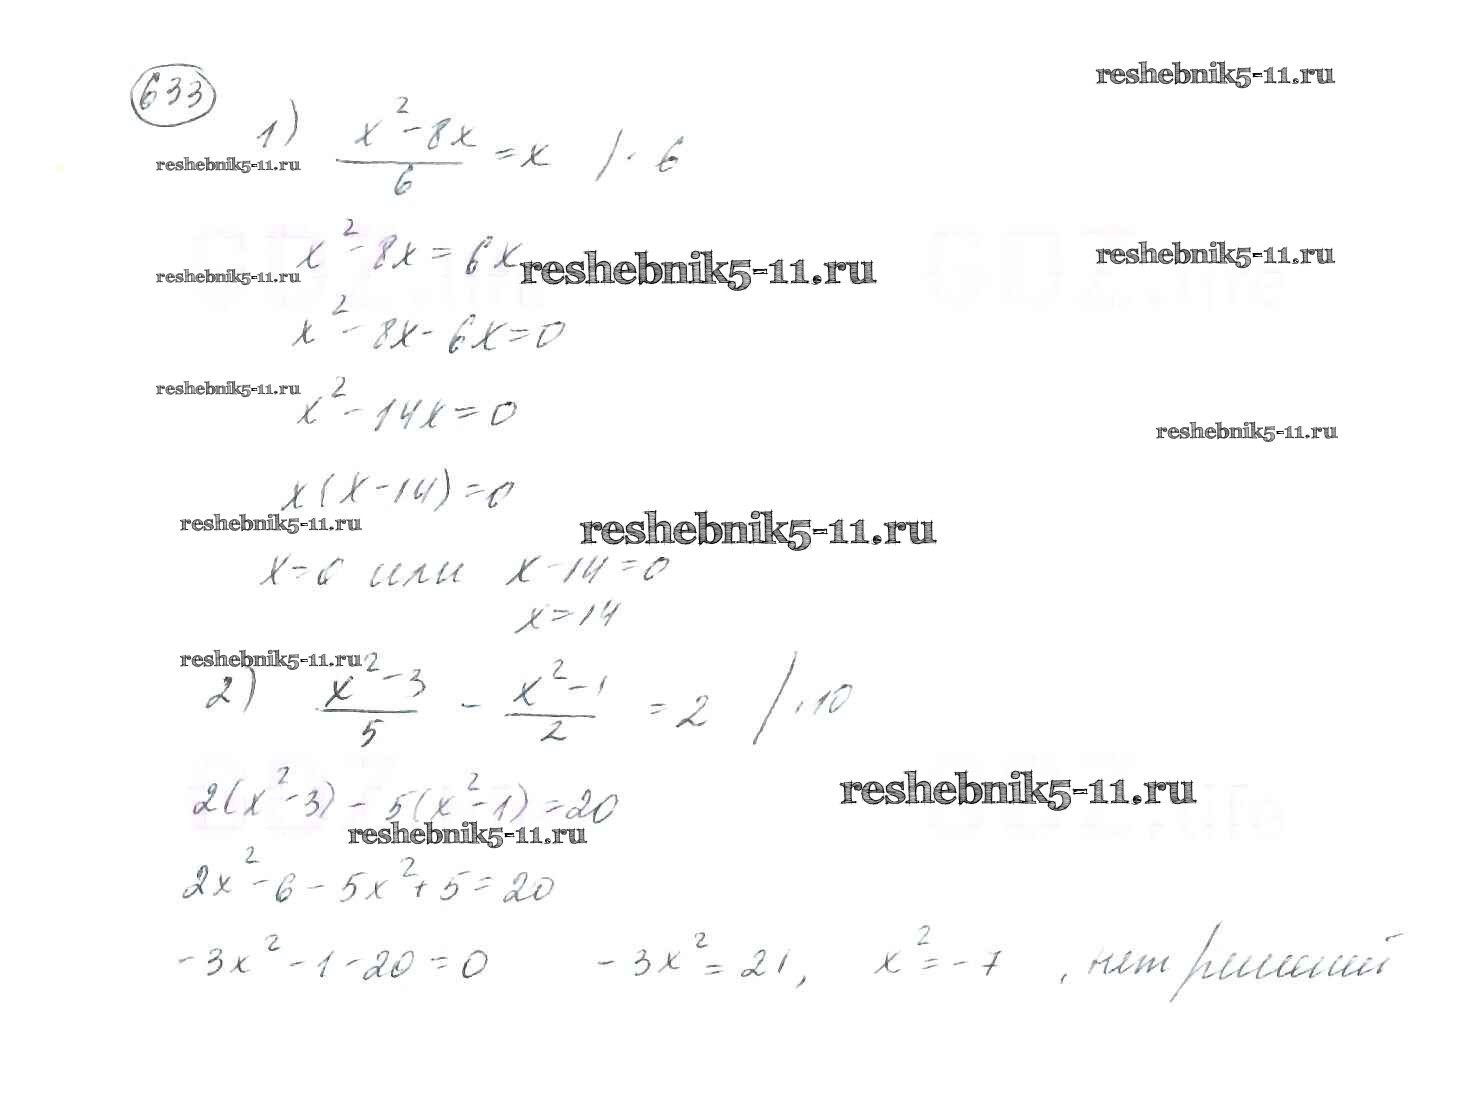 633
reshebnik5-11.ru
1) (x²-8x)/6 = x / · 6
reshebnik5-11.ru
x²-8x = 6x
reshebnik5-11.ru
reshebnik5-11.ru
reshebnik5-11.ru
x²-8x-6x=0
reshebnik5-11.ru
x²-14x=0
reshebnik5-11.ru
x(x-14)=0
reshebnik5-11.ru
reshebnik5-11.ru
x=0 или x-14=0
x=14
reshebnik5-11.ru
2) (x²-3)/5 - (x²-1)/2 = 2 / ·10
reshebnik5-11.ru
2(x²-3) - 5(x²-1)=20
reshebnik5-11.ru
2x²-6-5x²+5=20
-3x²-1-20=0 -3x²=21, x²=-7, нет решений